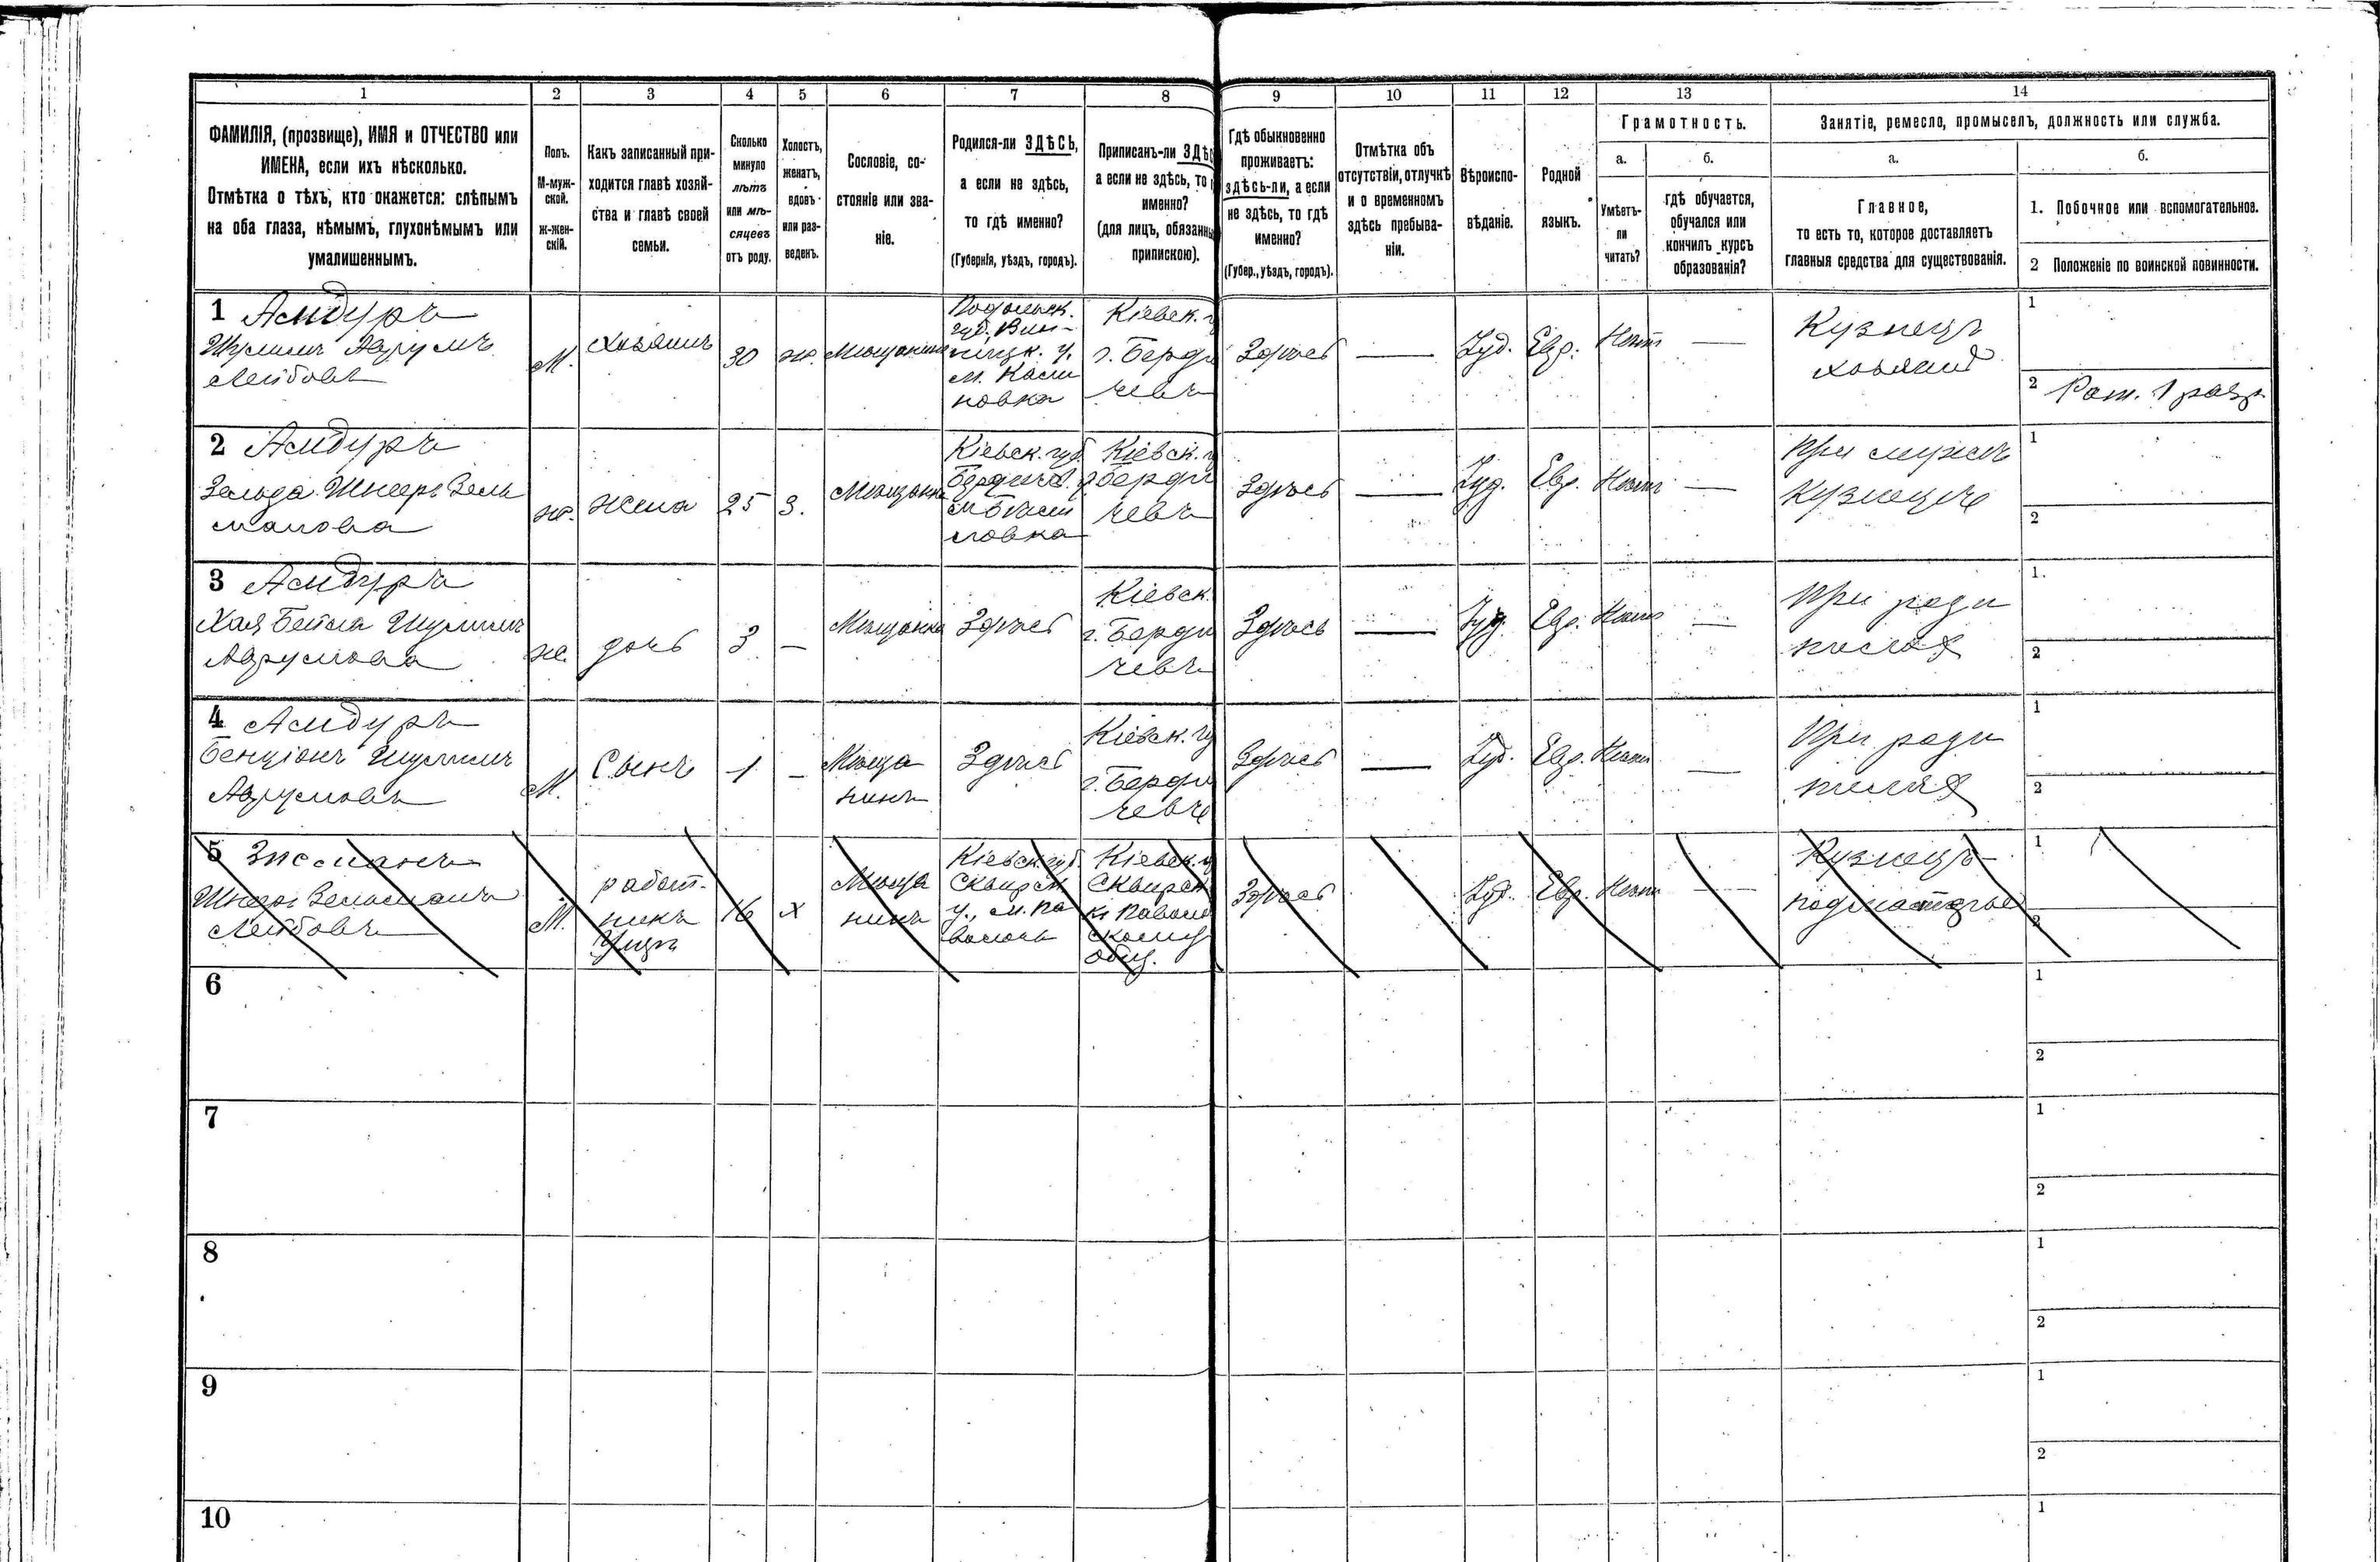 1 2 3 4 5 6 7 8 9 10 11 12 13 14
ФАМИЛІЯ, (прозвище), ИМЯ и ОТЧЕСТВО или
ИМЕНА, если ихъ нѣсколько.
Отмѣтка о тѣхъ, кто окажется: слѣпымъ
на оба глаза, нѣмымъ, глухонѣмымъ или
умалишеннымъ.
Полъ.
М-муж-
ской.
ж-жен-
скій.
Какъ записанный при-
ходится главѣ хозяй-
ства и главѣ своей
семьи.
Сколько
минуло
лѣтъ
или мѣ-
сяцевъ
отъ роду.
Холостъ,
женатъ,
вдовъ
или раз-
веденъ.
Сословіе, со-
стояніе или зва-
ніе.
Родился-ли ЗДѢСЬ,
а если не здѣсь,
то гдѣ именно?
(Губернія, уѣздъ, городъ).
Приписанъ-ли ЗДѢС
а если не здѣсь, то
именно?
(для лицъ, обязанны
припискою).
Гдѣ обыкновенно
проживаетъ:
здѣсь-ли, а если
не здѣсь, то гдѣ
именно?
(Губер., уѣздъ, городъ).
Отмѣтка объ
отсутствіи, отлучкѣ
и о временномъ
здѣсь пребыва-
ніи.
Вѣроиспо-
вѣданіе.
Родной
языкъ.
Грамотность.
а.
Умѣетъ-
ли
читать?
б.
гдѣ обучается,
обучался или
кончилъ курсъ
образованія?
Занятіе, ремесло, промыселъ, должность или служба.
а.
Главное,
то есть то, которое доставляетъ
главныя средства для существованія.
б.
1. Побочное или вспомогательное.
2 Положеніе по воинской повинности.
1
Шулимъ Аврумъ
Лейбовъ
М.
Хозяинъ
30
ж.
Мѣщанинъ
Подольск.
губ. Вин-
ницк. у.
м. Кали
новка
Кіевск. г
г. Берди
чевъ
Здѣсь
—
Іуд.
Евр.
Нѣтъ
—
Кузнецъ
хозяинъ
1
2 Рат. 1 разр
2
Зельда Шнеер Зель
манова
ж.
жена
25
З.
Мѣщанка
Кіевск. губ.
Бердичев. у
м.
Кіевск. г
г Берди
чевъ
Здѣсь
—
Іуд.
Евр.
Нѣтъ
—
При мужѣ
кузнецѣ
1
2
3
Хая Бейла Шулимъ
Аврумова
ж.
дочь
3
—
Мѣщанка
Здѣсь
Кіевск.
г. Берди
чевъ
Здѣсь
—
Іуд.
Евр.
Нѣтъ
—
При роди
теляхъ
1.
2
4
Бенціонъ Шулимъ
Аврумовъ
М.
Сынъ
1
—
Мѣща
нинъ
Здѣсь
Кіевск. гу
г. Берди
чевъ
Здѣсь
—
Іуд.
Евр.
Нѣтъ
—
При роди
теляхъ
1
2
5
Шнеер Зельманъ
Лейбовъ
М.
работ-
никъ
16
Х
Мѣща
нинъ
Кіевск. губ.
Сквирск
у., м. Па
волочь
Кіевск. г
Сквирск
къ Паволо
скому
общ.
Здѣсь
Іуд.
Евр.
Нѣтъ
—
Кузнецъ-
подмастерье
1
2
6
1
2
7
1
2
8
1
2
9
1
2
10
1